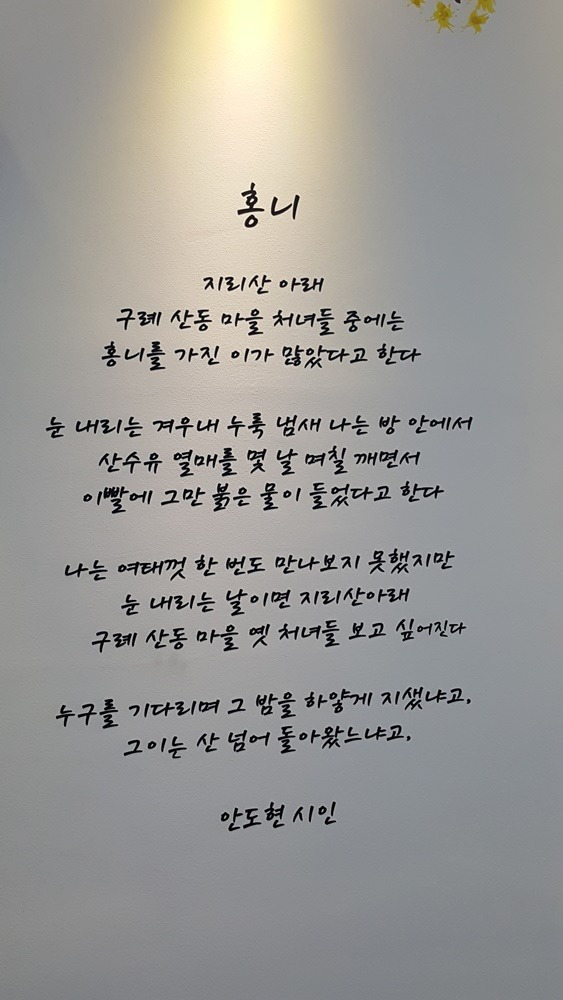 홍니
지리산 아래
구례 산동 마을 처녀들 중에는
홍니를 가진 이가 많았다고 한다
눈 내리는 겨우내 누룩 냄새 나는 방 안에서
산수유 열매를 몇 날 며칠 깨면서
이빨에 그만 붉은 물이 들었다고 한다
나는 여태껏 한 번도 만나보지 못했지만
눈 내리는 날이면 지리산아래
구례 산동 마을 옛 처녀들 보고 싶어진다
누구를 기다리며 그 밤을 하얗게 지샜냐고,
그이는 산 넘어 돌아왔느냐고,
안도현 시인